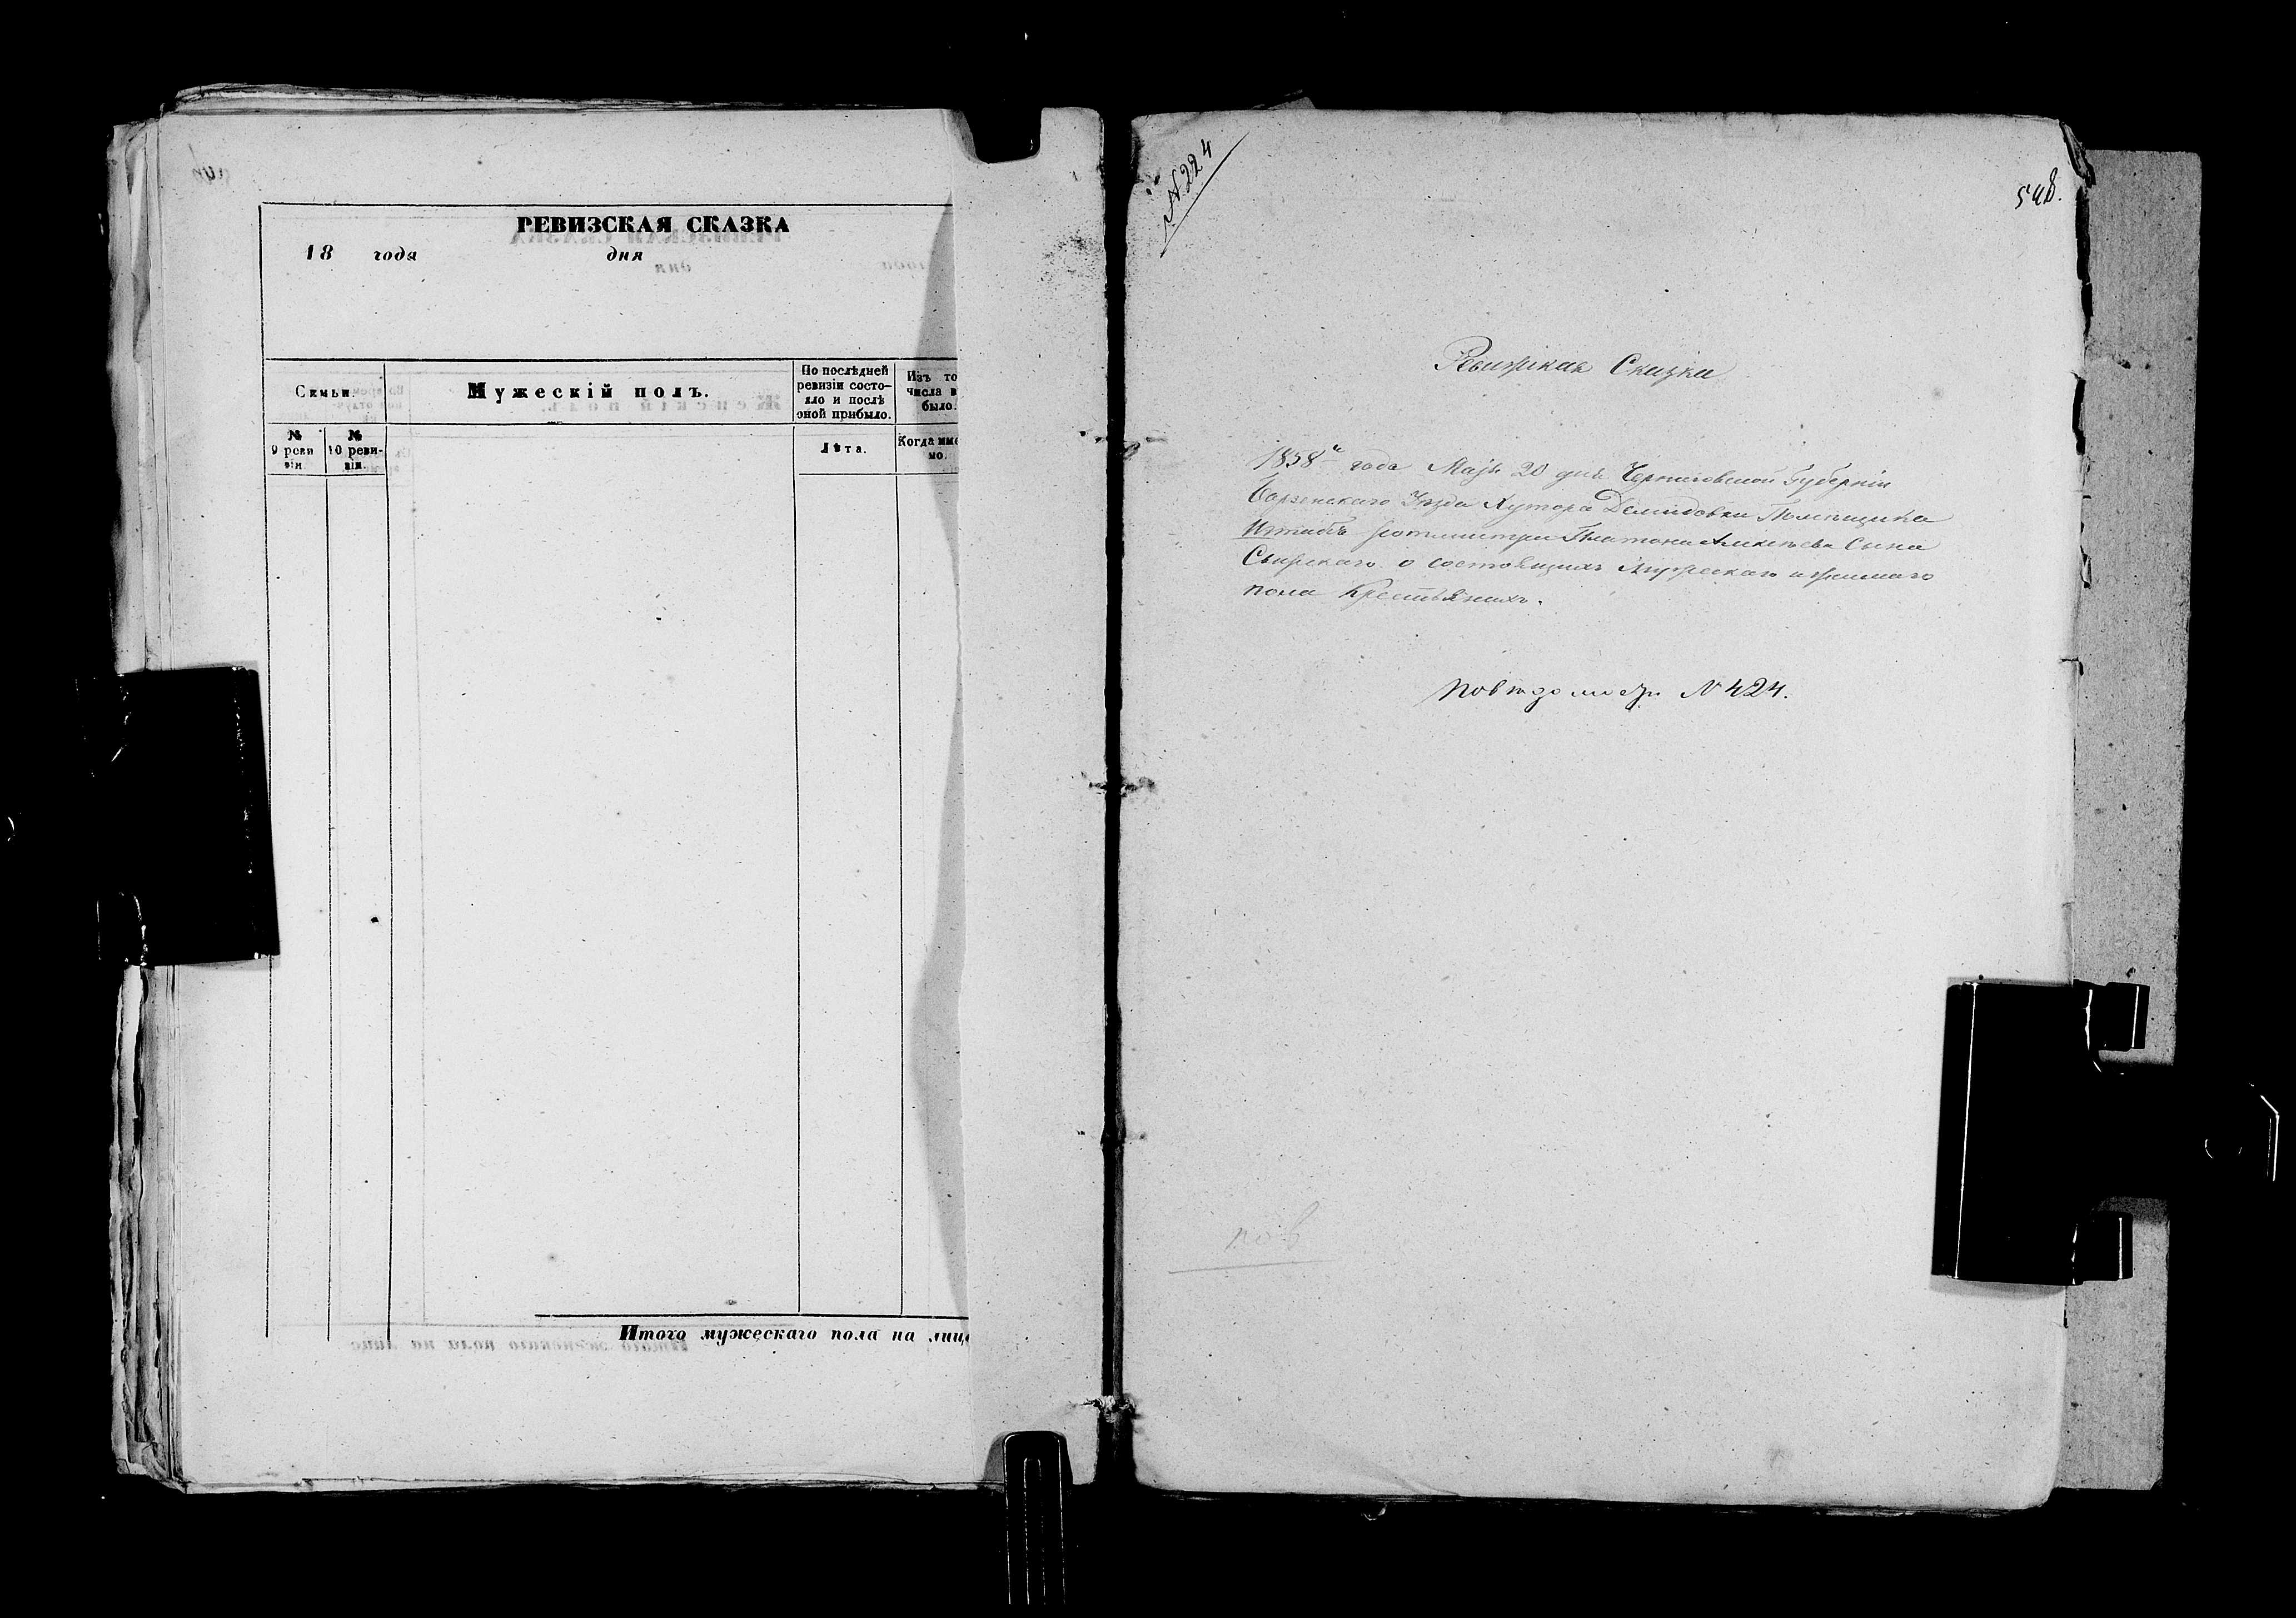 РЕВИЗСКАЯ СКАЗКА
18 года дня
Семьи.
Мужескій полъ.
По послѣдней
ревизіи состо-
яло и послѣ
оной прибыло.
Изъ то
числа в
было.
№
9 реви
зіи.
№
10 реви-
зіи.
Лѣта.
Когда име
но.
Итого мужескаго пола на лиц
N 224
548.
Ревизская Сказка
1858 года Маія 20 дня Черниговской Губерніи
Борзенскаго Уѣзда Хутора Демидовки Помѣщика
Штабъ Ротмистра Платона Алексѣева Сына
о состоящихъ Мужескаго и женскаго
пола Крестьянахъ.
N 424.
пов